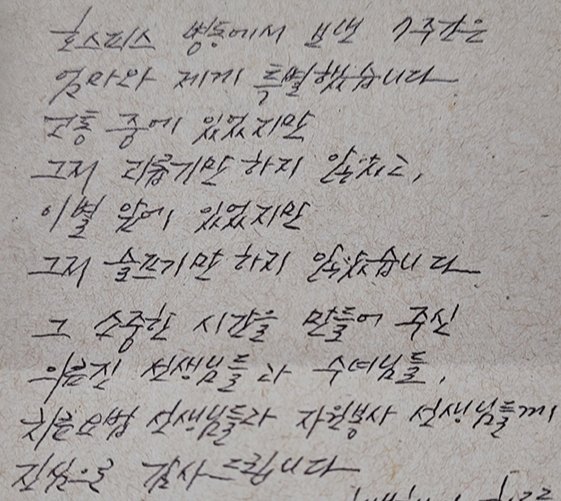 호스피스 병동에서 보낸 7주간은
엄마와 제게 특별했습니다
고통 중에 있었지만
그저 괴롭기만 하지 않았고,
이별 앞에 있었지만
그저 슬프기만 하지 않았습니다
그 소중한 시간을 만들어 주신
의료진 선생님들과 수녀님들,
치료요법 선생님들과 자원봉사 선생님들께
진심으로 감사드립니다